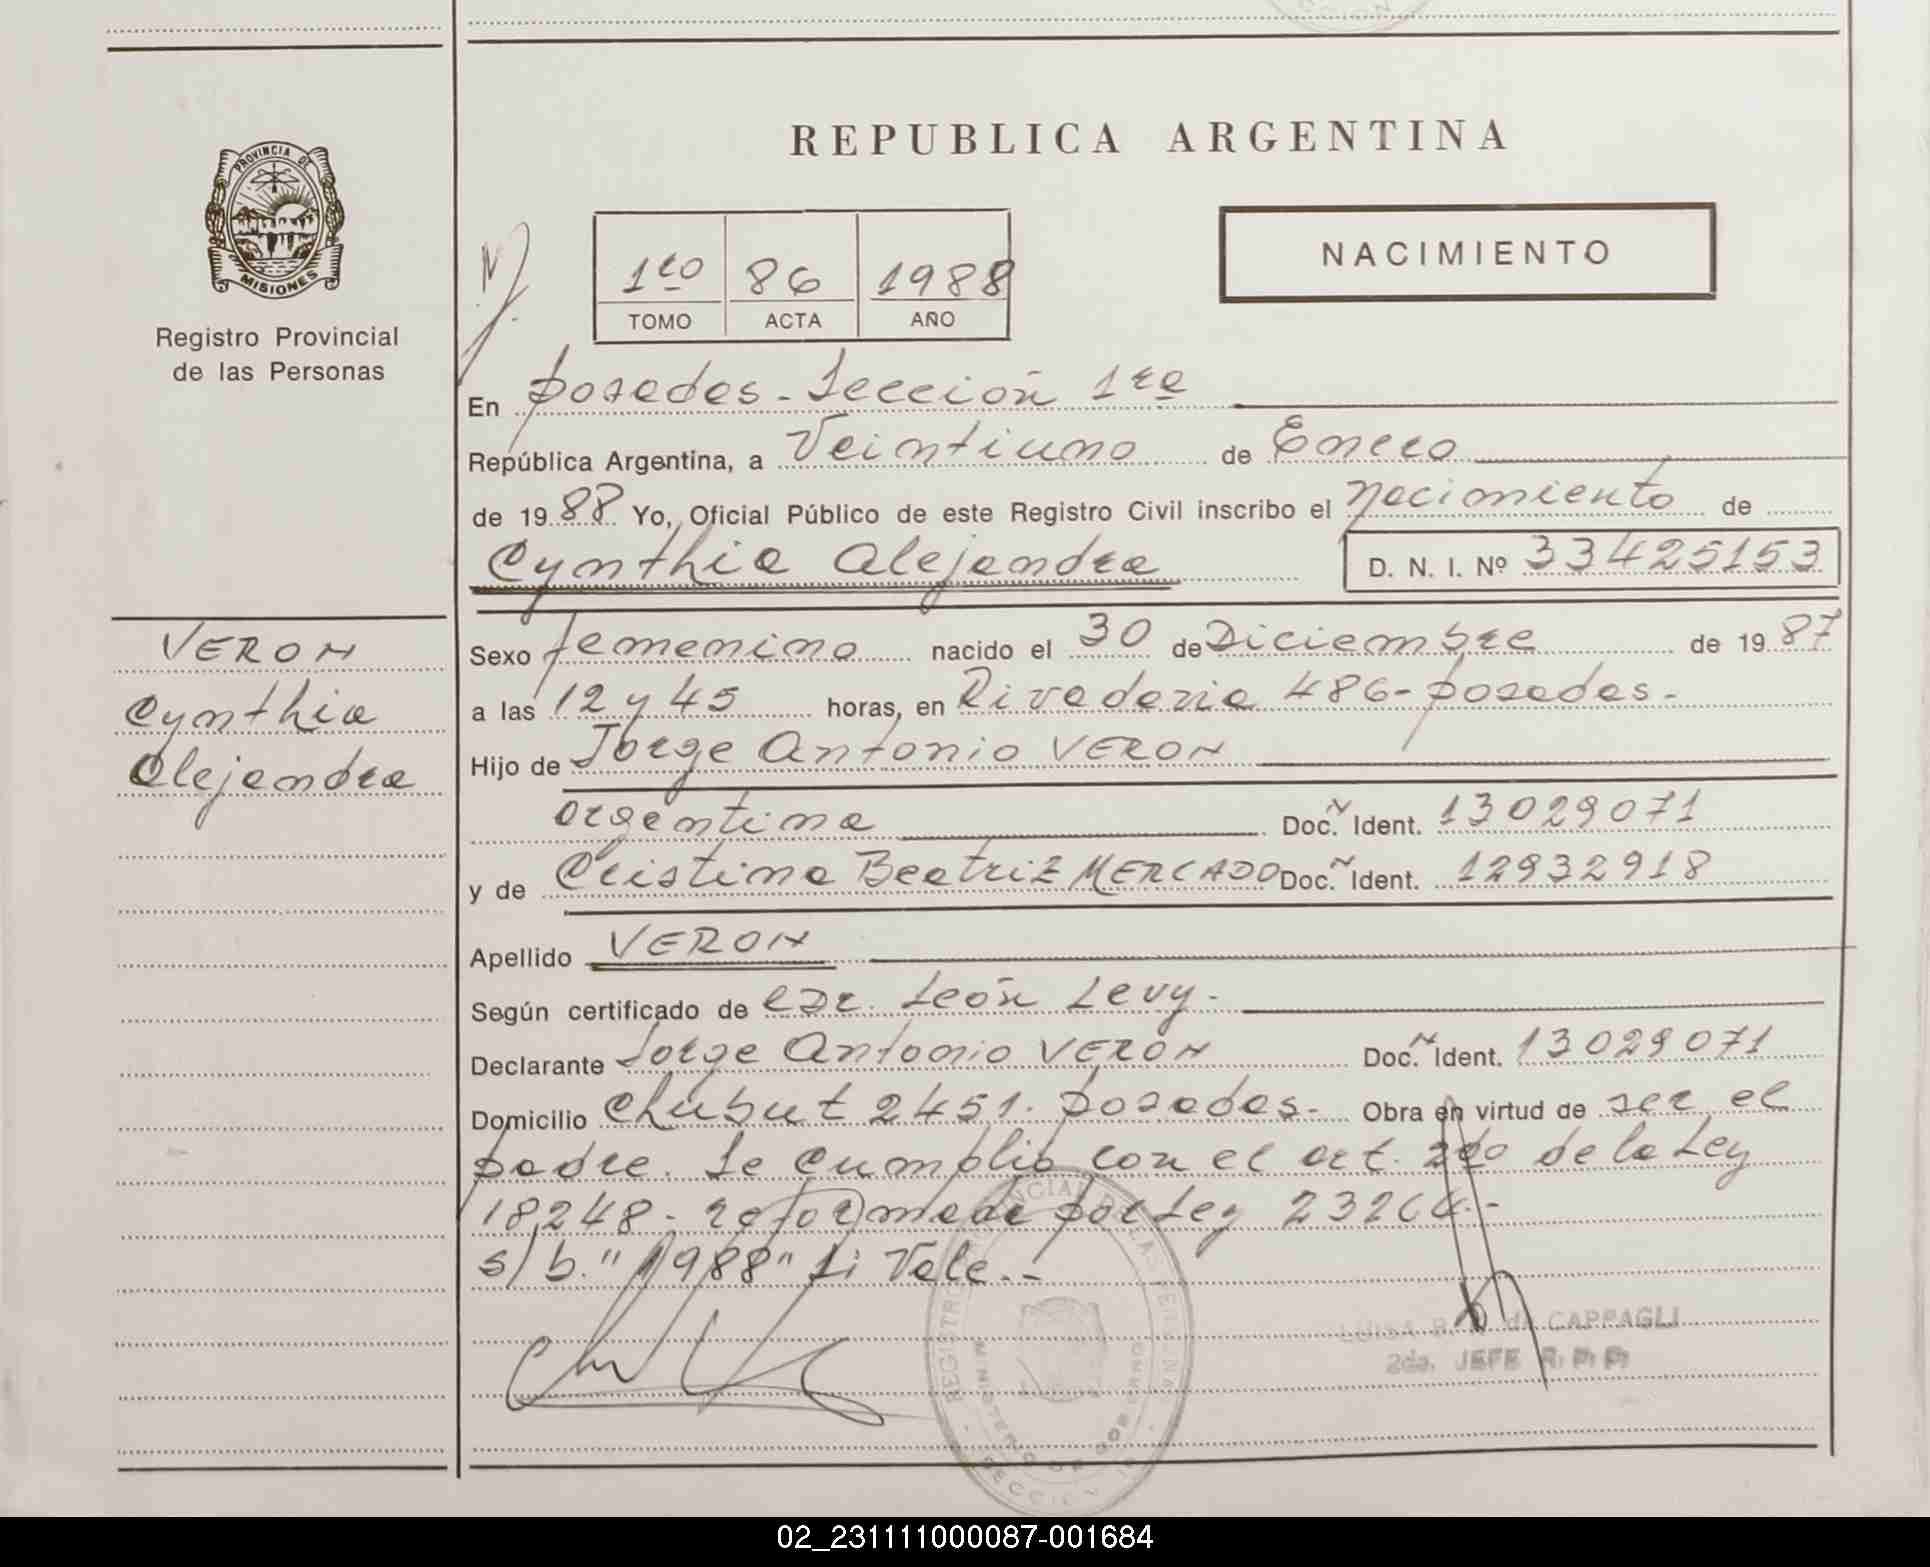 CCION
PROVINCIA DE
MISIONES
Registro Provincial
de las Personas
VERON
Cynthia
Alejandra
REPUBLICA ARGENTINA
1ro 86 1988
TOMO ACTA AÑO
NACIMIENTO
En Posadas - Sección 1ra
República Argentina, a Veintiuno de Enero
de 1988 Yo, Oficial Público de este Registro Civil inscribo el Nacimiento de
Cynthia Alejandra D. N. I. Nº 33425153
Sexo femenino nacido el 30 de Diciembre de 1987
a las 12 y 45 horas, en Rivadavia 486 - Posadas -
Hijo de Jorge Antonio VERON
argentina Doc. Ident. 13029071
y de Cristina Beatriz MERCADO Doc. Ident. 12932918
Apellido VERON
Según certificado de Dr. León Levy -
Declarante Jorge Antonio VERON Doc. Ident. 13029071
Domicilio Chubut 2451. Posadas - Obra en virtud de ser el
padre. Se cumplió con el art. 2do de la Ley
18248 - reformada por Ley 23264.-
s/b. "1988" Si Vale.-
LUISA B. de CAPPAGLI
2da. JEFE R. P. P.
02_231111000087-001684